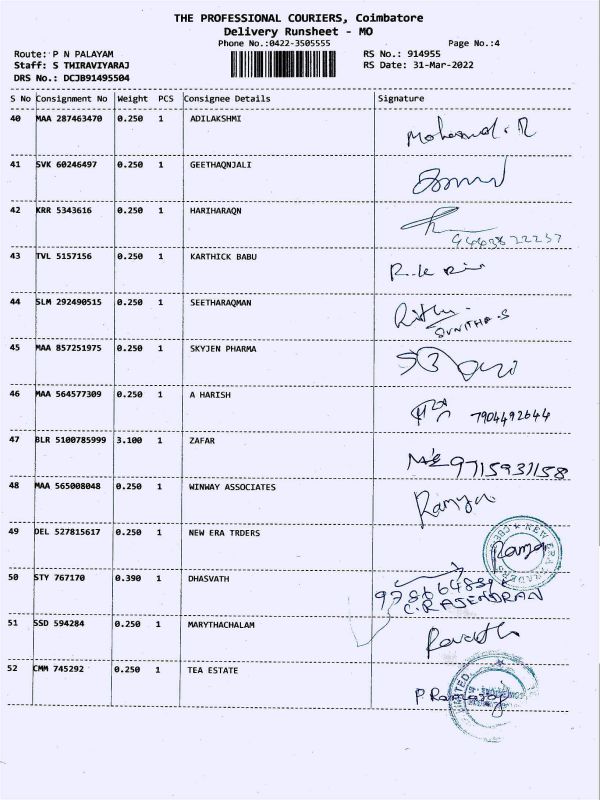 THE PROFESSIONAL COURIERS, Coimbatore
Delivery Runsheet - MO
Phone No.:0422-3505555 Page No.:4
Route: P N PALAYAM RS No.: 914955
Staff: S THIRAVIYARAJ RS Date: 31-Mar-2022
DRS No.: DCJB91495504
S No Consignment No Weight PCS Consignee Details Signature
40 MAA 287463470 0.250 1 ADILAKSHMI
41 SVK 60246497 0.250 1 GEETHAQNJALI
42 KRR 5343616 0.250 1 HARIHARAQN
43 TVL 5157156 0.250 1 KARTHICK BABU
44 SLM 292490515 0.250 1 SEETHARAQMAN
SUNITHA.S
45 MAA 857251975 0.250 1 SKYJEN PHARMA
46 MAA 564577309 0.250 1 A HARISH
7904492644
47 BLR 5100785999 3.100 1 ZAFAR
9715931158
48 MAA 565008048 0.250 1 WINWAY ASSOCIATES
Ramya
49 DEL 527815617 0.250 1 NEW ERA TRDERS
NEW ERA TRADERS
Ramya
50 STY 767170 0.390 1 DHASVATH
C.RAJENDRAN
51 SSD 594284 0.250 1 MARYTHACHALAM
52 CMM 745292 0.250 1 TEA ESTATE
P Ramasaj